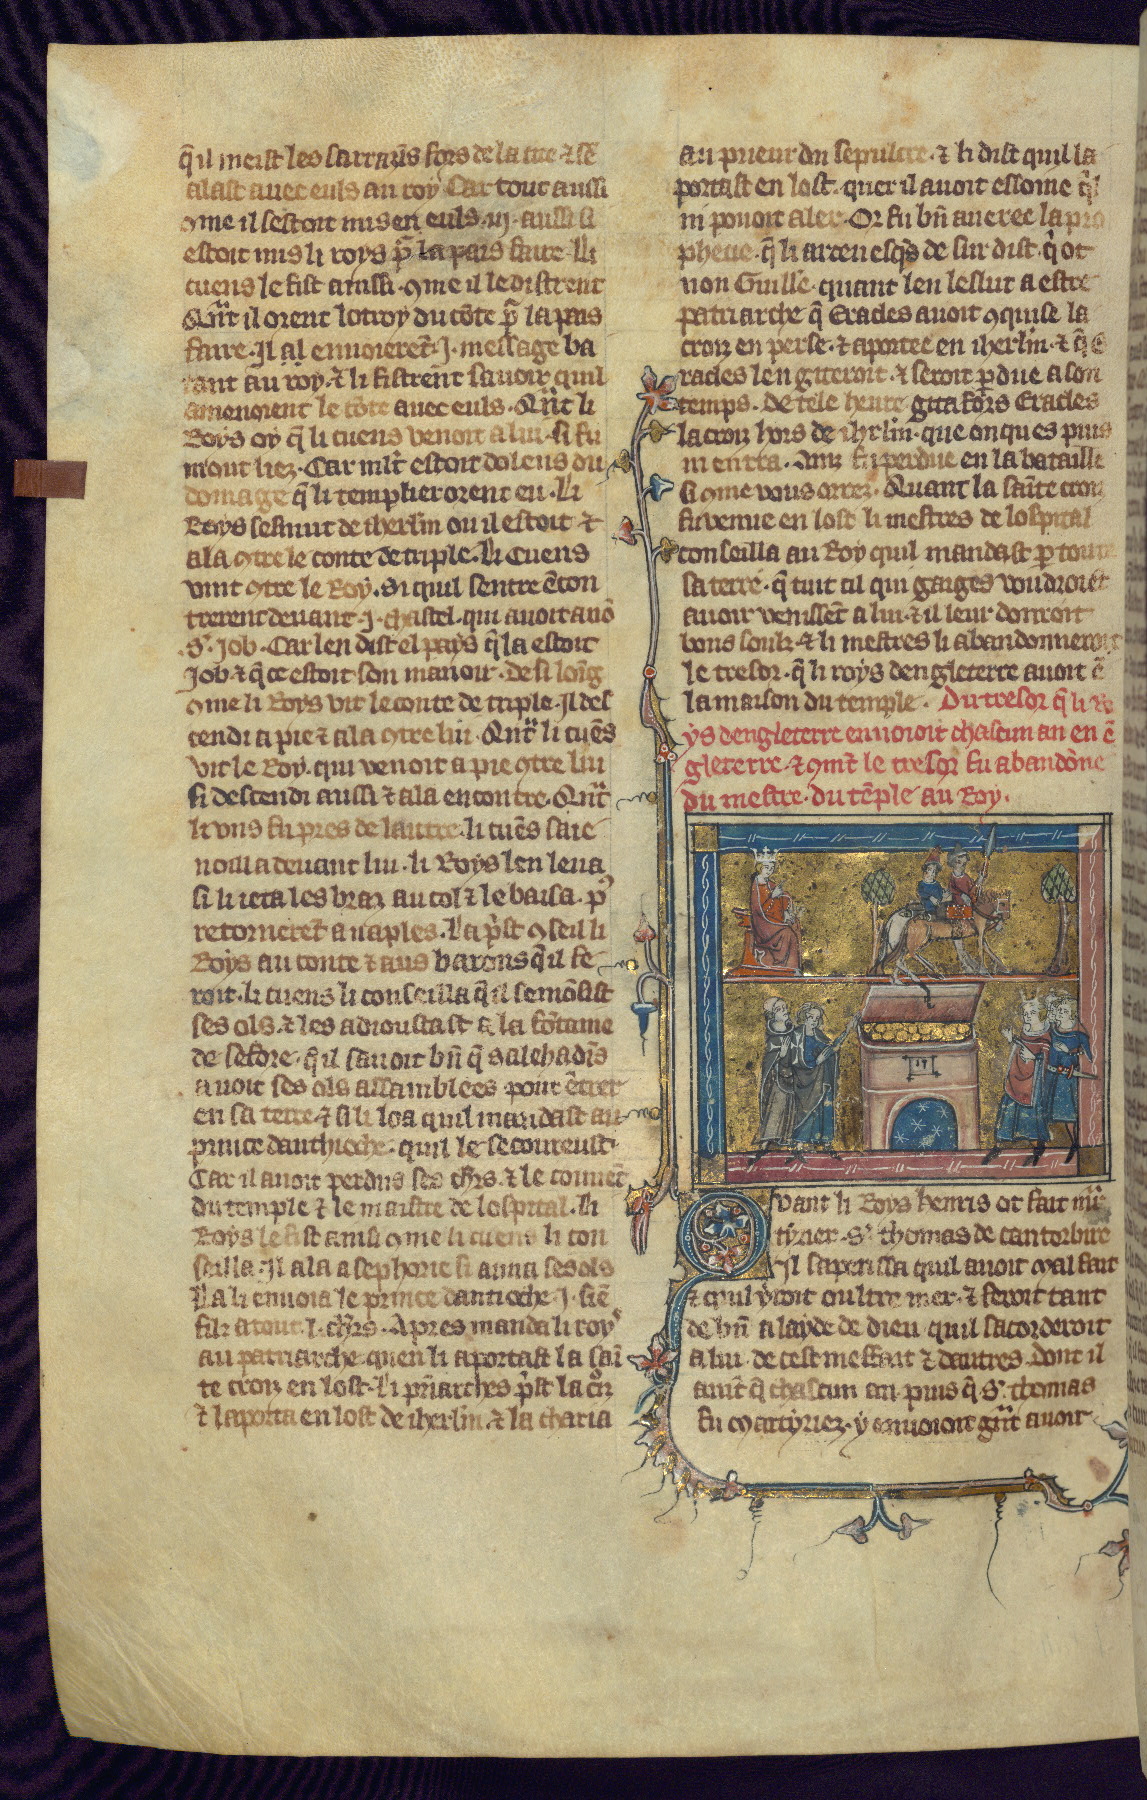 q̃ il meist les sarrazĩs fors de la tire ⁊ se
alast auec euls au roy Car tout aussi
ꝯme il sestoit mis en euls .iij. aussi si
estoit mis li roys pͬ la pais faire. Li
cuens le fist ainssi. ꝯme il le distrent
Qñt il orent lotroy du cõte pͬ la pais
faire. Il al enuoierẽt .J. message ba
tant au roy. ⁊ li fistrẽnt sauoir quil
amenoient le cõte auec euls. Qñt li
Roys oy q̃ li cuens venoit a lui. si fu
mout liez. Car ml̃t estoit dolens du
domage q̃ li templier orent eu. Li
Roys sesmut de iherlm̃ ou il estoit ⁊
ala ꝯtre le conte de triple. Li Cuens
vint ꝯtre le Roy. Si quil sentre ẽcon
trerent deuant .J. chastel. qui auoit a nõ
S͛. Job. Car len dist el pays q̃ la estoit
Job. ⁊ q̃ ce estoit son manoir. De si loĩg
ꝯme li Roys vit le conte de triple. Il des
cendi a pie ⁊ ala ꝯtre lui. Qñt li cuẽs
vit le Roy. qui venoit a pie ꝯtre lui
si descendi aussi ⁊ ala encontre. Qñt
li vns fu pres de lautre. li cuẽs saie
noilla deuant lui. li Roys len leua
si li ieta les braz au col ⁊ le baisa. pͥ
retornerẽt a naples. La pͥst ꝯseil li
Roys au conte ⁊ aus barons q̃ il fe
roit. li cuens li conseilla q̃ il semõsist
ses ols. ⁊ les adioustast a la fõtaine
de sefore. q̃ il sauoit bñ q̃ salehadĩs
auoit ses ols assamblees pour ẽtrer
en sa terre. ⁊ si li loa quil mandast au
prince danthioche. quil le secoureust.
Car il auoit perdus ses chr̃s. ⁊ le couuẽt
du temple ⁊ le maistre de lospital. Li
Roys le fist ainsi ꝯme li cuens li con
seilla. Il ala a sephorie si auna ses ols
La li enuoia le prince dantioche .J. siẽ
filz atout .l. chr̃s. Apres manda li roy͛
au patriarche quen li aportast la sai
te croiz en lost. Li pr̃iarches pͥst la cͬoiz
⁊ laporta en lost de iherlm̃. ⁊ la charia
au prieur du sepulcre. ⁊ li dist quil la
portast en lost. quer il auoit essoine q̃l
ni pouoit aler. Or fu bñ aueree la pro
phecie. q̃ li arceuesqs̃ de sur dist. q̃ ot
non Guill̃e. quant len leslut a estre
patriarche q̃ Eracles auoit ꝯquise la
croiz en perse. ⁊ aportee en iherlm̃. ⁊ q̃ E
racles len giteroit. ⁊ seroit ꝑdue a son
temps. De tele heure gita fors Eracles
la croiz hors de iherlm̃. que onques puis
ni entra. Ainz fu perdue en la bataille
si ꝯme vous orrez. Quant la saĩte croiz
fu venue en lost li mestres de lospital
conseilla au Roy quil mandast ꝑ toute
sa terre. q̃ tuit cil qui gaiges voudroiẽt
auoir venissẽt a lui. ⁊ il leur donroit
bons soulz. ⁊ li mestres li abandonneroit
le tresor. q̃ li roys dengleterre auoit ẽ
la maison du temple. Du tresor q̃ li Ro
ys dengleterre enuoioit chascun an en ẽ
gleterre. ⁊ ꝯmẽt le tresor fu abandõne
du mestre. du tẽple au Roy.
Quant li Roys henris ot fait mr̃
tyrier. S͛. thomas de cantorbire
Il saperissa quil auoit mal fait
⁊ quil yroit oultre mer. ⁊ feroit tant
de bñ a layde de dieu quil sacorderoit
a lui. de cest meffait ⁊ dautres. dont il
auĩt q̃ chascun an. puis q̃ S͛. thomas
fu martyriez. y enuoioit gr̃nt auoir